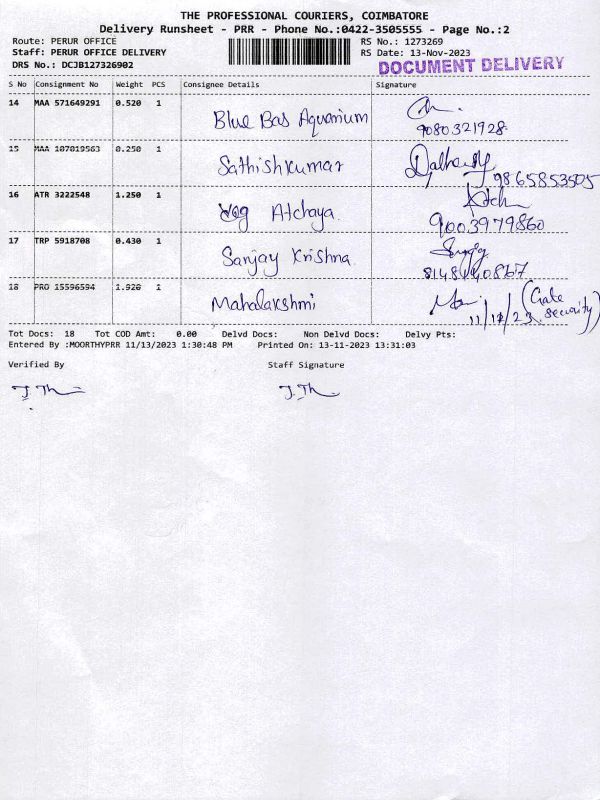 THE PROFESSIONAL COURIERS, COIMBATORE
Delivery Runsheet - PRR - Phone No.:0422-3505555 - Page No.:2
Route: PERUR OFFICE RS No.: 1273269
Staff: PERUR OFFICE DELIVERY RS Date: 13-Nov-2023
DRS No.: DCJB127326902 DOCUMENT DELIVERY
S No Consignment No Weight PCS Consignee Details Signature
14 MAA 571649291 0.520 1 Blue Bas Aquarium
9080321928
15 MAA 187019563 0.250 1 Sathishkumar
9865853505
16 ATR 3222548 1.250 1 Atchaya
9003979860
17 TRP 5918708 0.430 1 Sanjay Krishna
18 PRO 15596594 1.926 1 Mahalakshmi
(Gate security)
Tot Docs: 18 Tot COD Amt: 0.00 Delvd Docs: Non Delvd Docs: Delvy Pts:
Entered By :MOORTHYPRR 11/13/2023 1:30:48 PM Printed On: 13-11-2023 13:31:03
Verified By Staff Signature